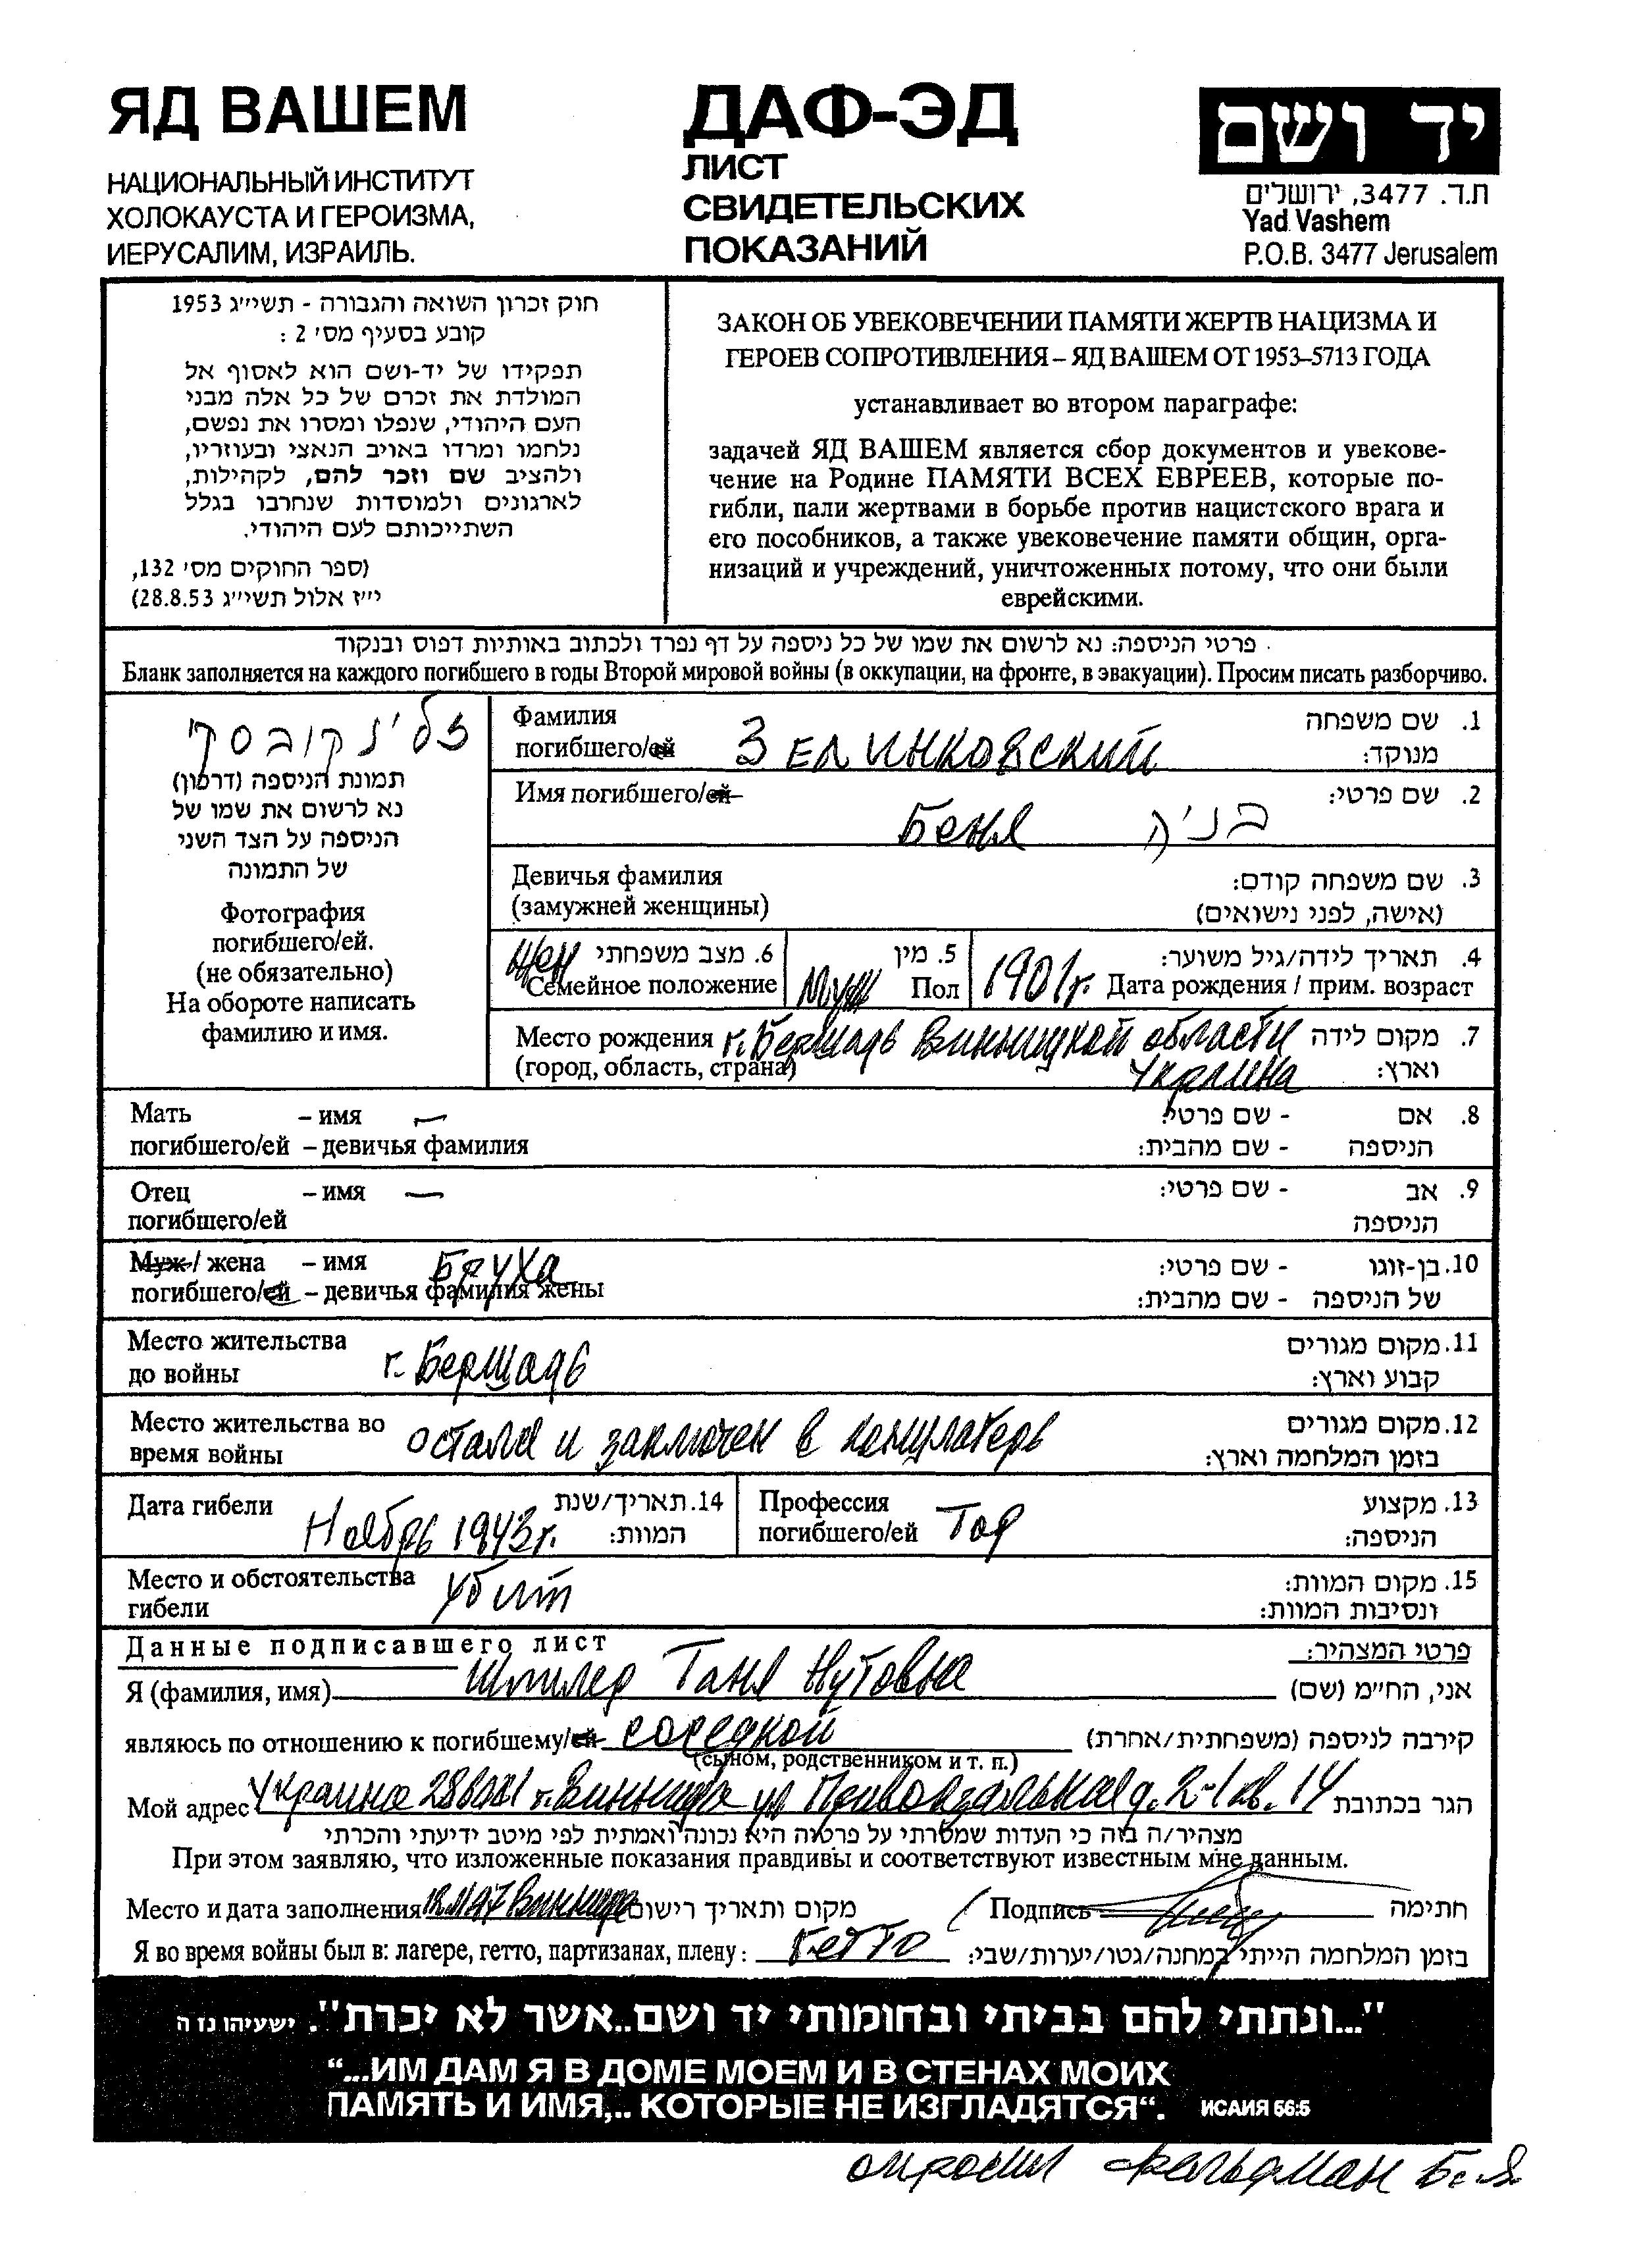 ЯД ВАШЕМ
НАЦИОНАЛЬНЫЙ ИНСТИТУТ
ХОЛОКАУСТА И ГЕРОИЗМА,
ИЕРУСАЛИМ, ИЗРАИЛЬ.
ДАФ-ЭД
ЛИСТ
СВИДЕТЕЛЬСКИХ
ПОКАЗАНИЙ
יד ושם
ת.ד. 3477, ירושלים
Yad Vashem
P.O.B. 3477 Jerusalem
חוק זכרון השואה והגבורה - תשי״ג 1953
קובע בסעיף מס׳ 2 :
תפקידו של יד-ושם הוא לאסוף אל
המולדת את זכרם של כל אלה מבני
העם היהודי, שנפלו ומסרו את נפשם,
נלחמו ומרדו באויב הנאצי ובעוזריו,
ולהציב שם וזכר להם, לקהילות,
לארגונים ולמוסדות שנחרבו בגלל
השתייכותם לעם היהודי.
(ספר החוקים מס׳ 132,
י״ז אלול תשי״ג 28.8.53)
ЗАКОН ОБ УВЕКОВЕЧЕНИИ ПАМЯТИ ЖЕРТВ НАЦИЗМА И
ГЕРОЕВ СОПРОТИВЛЕНИЯ – ЯД ВАШЕМ ОТ 1953–5713 ГОДА
устанавливает во втором параграфе:
задачей ЯД ВАШЕМ является сбор документов и увекове-
чение на Родине ПАМЯТИ ВСЕХ ЕВРЕЕВ, которые по-
гибли, пали жертвами в борьбе против нацистского врага и
его пособников, а также увековечение памяти общин, орга-
низаций и учреждений, уничтоженных потому, что они были
еврейскими.
פרטי הניספה: נא לרשום את שמו של כל ניספה על דף נפרד ולכתוב באותיות דפוס ובנקוד
Бланк заполняется на каждого погибшего в годы Второй мировой войны (в оккупации, на фронте, в эвакуации). Просим писать разборчиво.
זלינקובסקי
תמונת הניספה (דרכון)
נא לרשום את שמו של
הניספה על הצד השני
של התמונה
Фотография
погибшего/ей.
(не обязательно)
На обороте написать
фамилию и имя.
Фамилия 1. שם משפחה
погибшего/ей Зелинковский מנוקד:
Имя погибшего/ей 2. שם פרטי:
Беня בניה
Девичья фамилия 3. שם משפחה קודם:
(замужней женщины) (אישה, לפני נישואים)
Жен 6. מצב משפחתי 5. מין 4. תאריך לידה/גיל משוער:
Семейное положение Муж Пол 1901г. Дата рождения / прим. возраст
Место рождения г. Бершадь Винницкой области 7. מקום לידה
(город, область, страна) Украина וארץ:
Мать – имя — 8. אם - שם פרטי:
погибшего/ей – девичья фамилия הניספה - שם מהבית:
Отец – имя — 9. אב - שם פרטי:
погибшего/ей הניספה
Муж / жена – имя Бруха 10. בן-זוגו - שם פרטי:
погибшего/ей – девичья фамилия жены של הניספה - שם מהבית:
Место жительства 11. מקום מגורים
до войны г. Бершадь קבוע וארץ:
Место жительства во 12. מקום מגורים
время войны остался и заключен в концлагерь בזמן המלחמה וארץ:
Дата гибели Ноябрь 1943г. 14. תאריך/שנת
המוות:
Профессия 13. מקצוע
погибшего/ей הניספה:
Место и обстоятельства 15. מקום המוות:
гибели убит ונסיבות המוות:
Данные подписавшего лист פרטי המצהיר:
Я (фамилия, имя) Таня Нутовна אני, החי״מ (שם)
являюсь по отношению к погибшему/ей соседкой קירבה לניספה (משפחתית/אחרת)
(сыном, родственником и т. п.)
Мой адрес Украина г. Винница ул Привокзальная д. 2-1 кв. 14 הגר בכתובת
מצהיר/ה בזה כי העדות שמסרתי על פרטיה היא נכונה ואמתית לפי מיטב ידיעתי והכרתי
При этом заявляю, что изложенные показания правдивы и соответствуют известным мне данным.
Место и дата заполнения Винница מקום ותאריך רישום Подпись חתימה
Я во время войны был в: лагере, гетто, партизанах, плену: Гетто בזמן המלחמה הייתי במחנה/גטו/יערות/שבי:
"...ונתתי להם בביתי ובחומותי יד ושם..אשר לא יכרת". ישעיהו נז ה
“...ИМ ДАМ Я В ДОМЕ МОЕМ И В СТЕНАХ МОИХ
ПАМЯТЬ И ИМЯ,.. КОТОРЫЕ НЕ ИЗГЛАДЯТСЯ“. ИСАИЯ 56:5
опросил Фельдман Б. Я